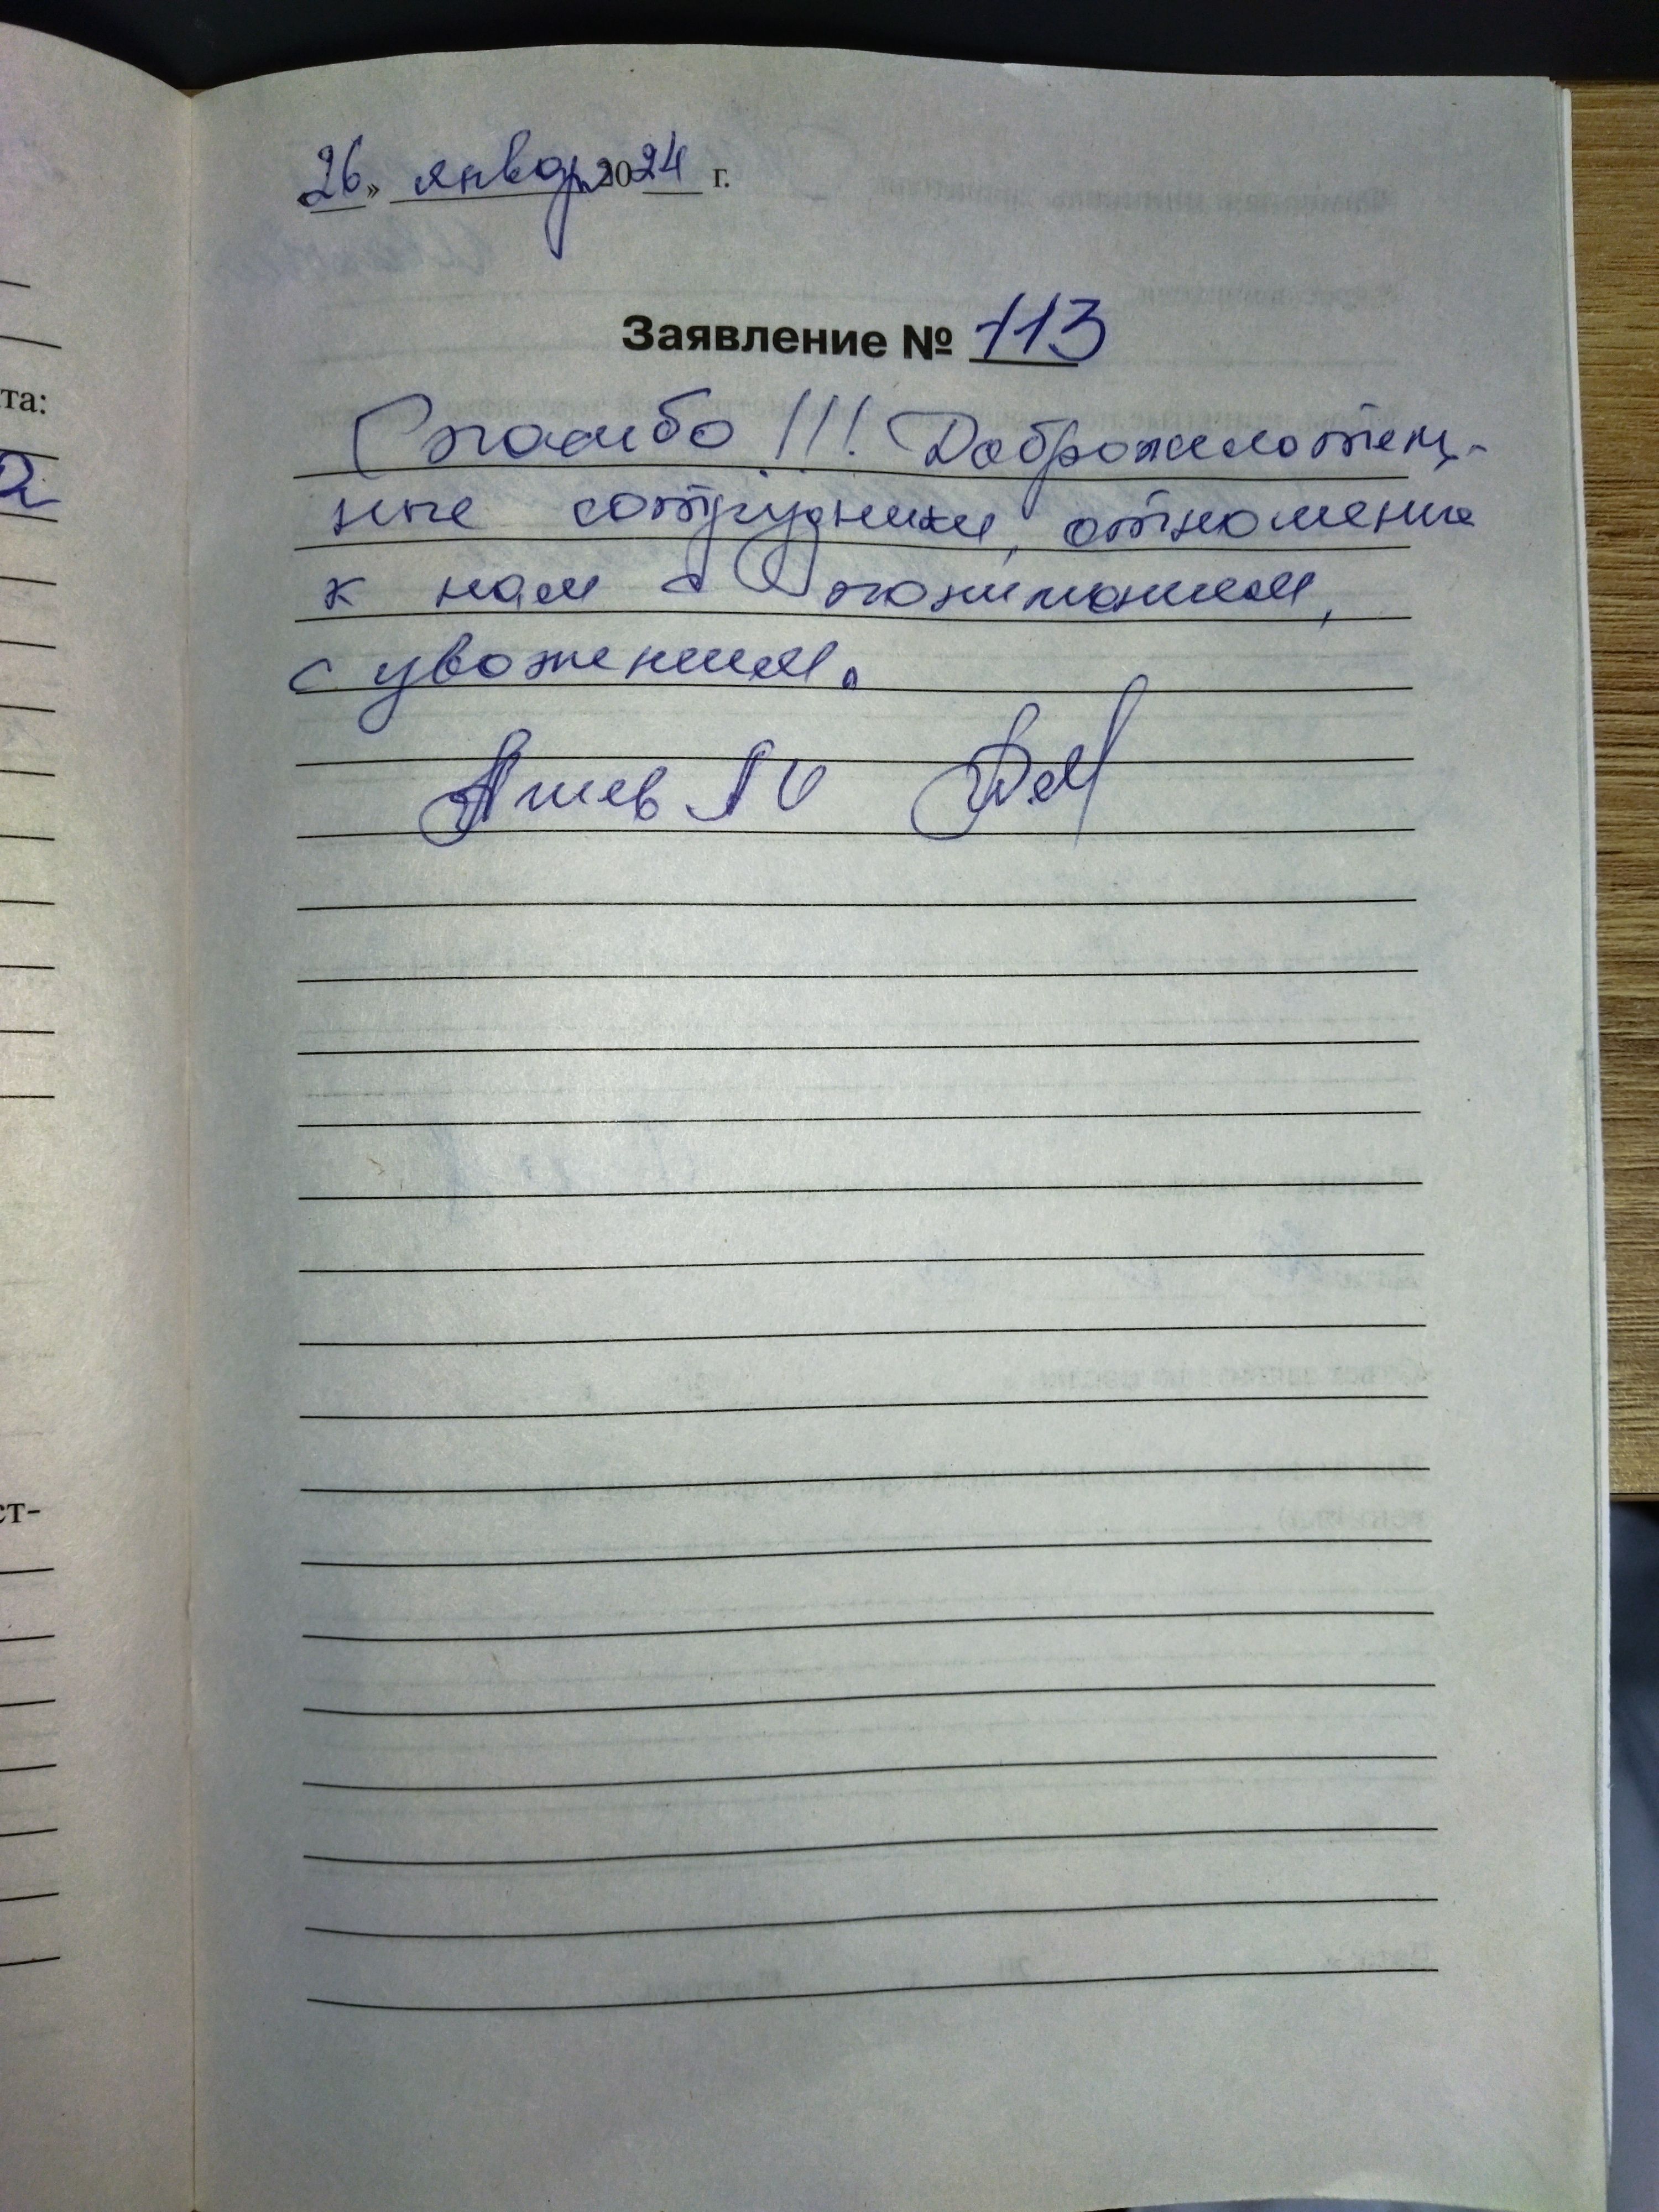 «26» январ 2024 г.
та:
Заявление № 113
Спасибо!!! Доброжелотель-
ные сотрудники, отношение
к нам с пониманием,
с уважением.
ст-